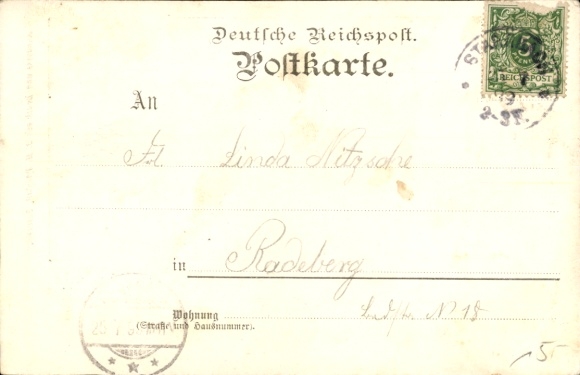 Deutsche Reichspost.
Postkarte.
5
REICHSPOST
2-3N.
An
Frl. Linda Nitzsche
in Radeberg
Wohnung
(Straße und Hausnummer).
No 18
5-